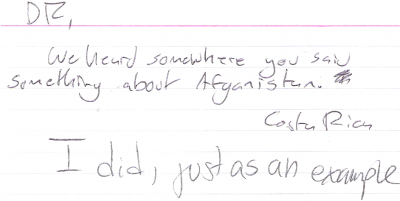 DR,
We heard somewhere you said
something about Afganistan.
Costa Rica
I did, just as an example